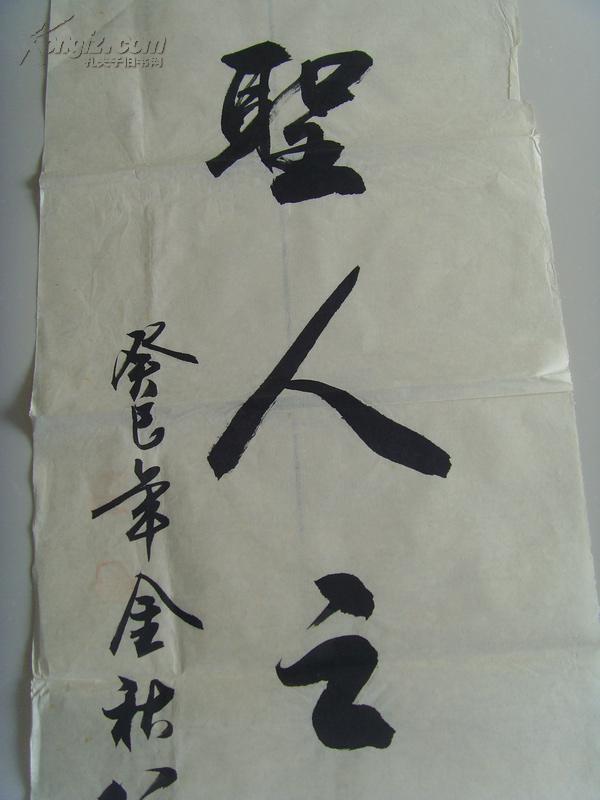 聖人之
癸巳年金秋
Kongfz.com
孔夫子旧书网